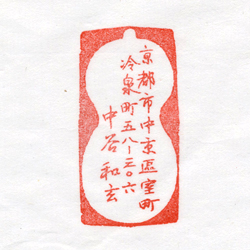 京都市中京區室町
冷泉町五八-三〇六
中谷和玄